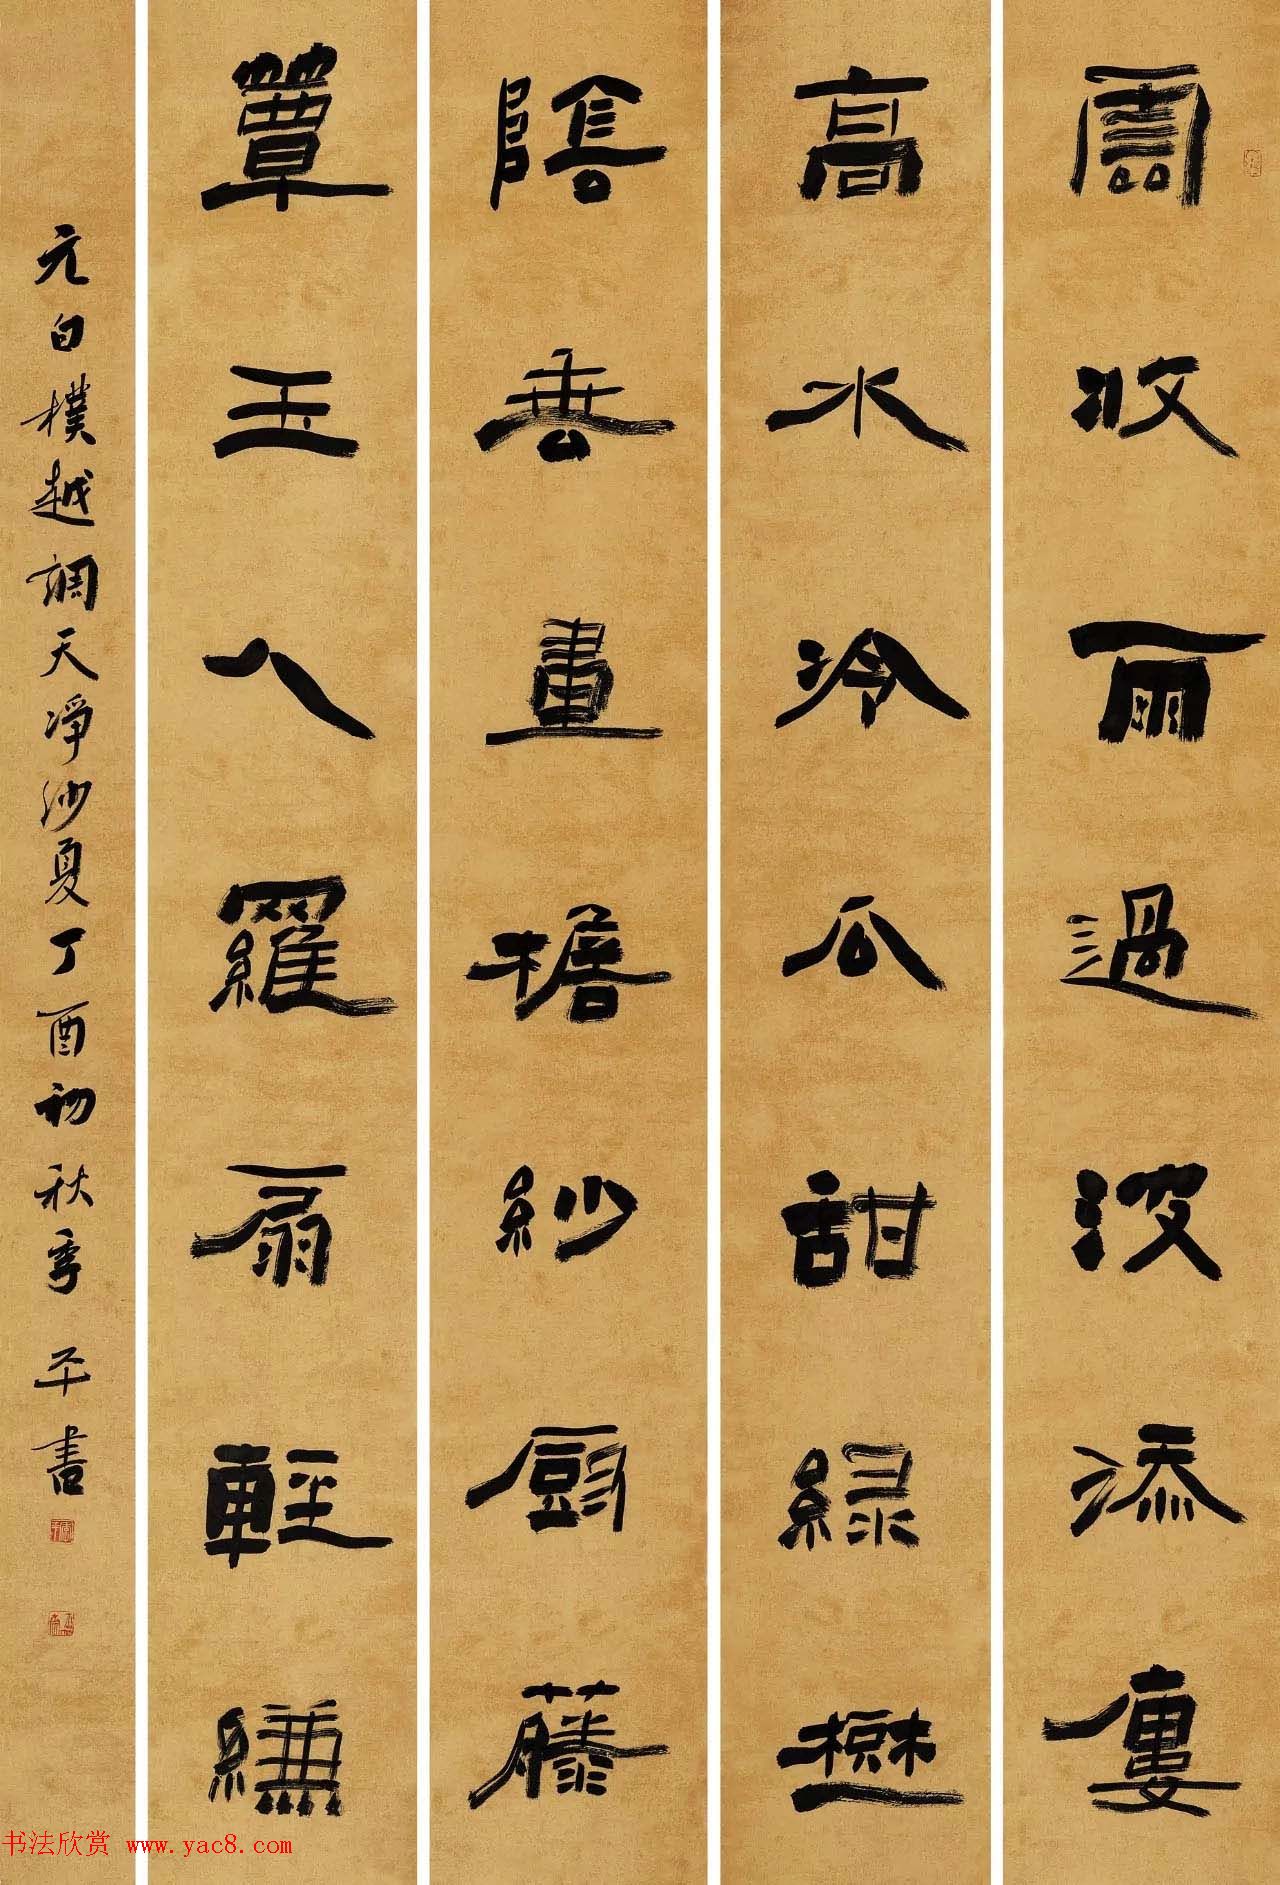 雲收雨過波添廔
高水冷瓜甜綠樹
陰垂畫檐紗厨藤
簟玉人羅扇輕縑
元白樸越調天凈沙夏丁酉初秋季平書
书法欣赏 www.yac8.com